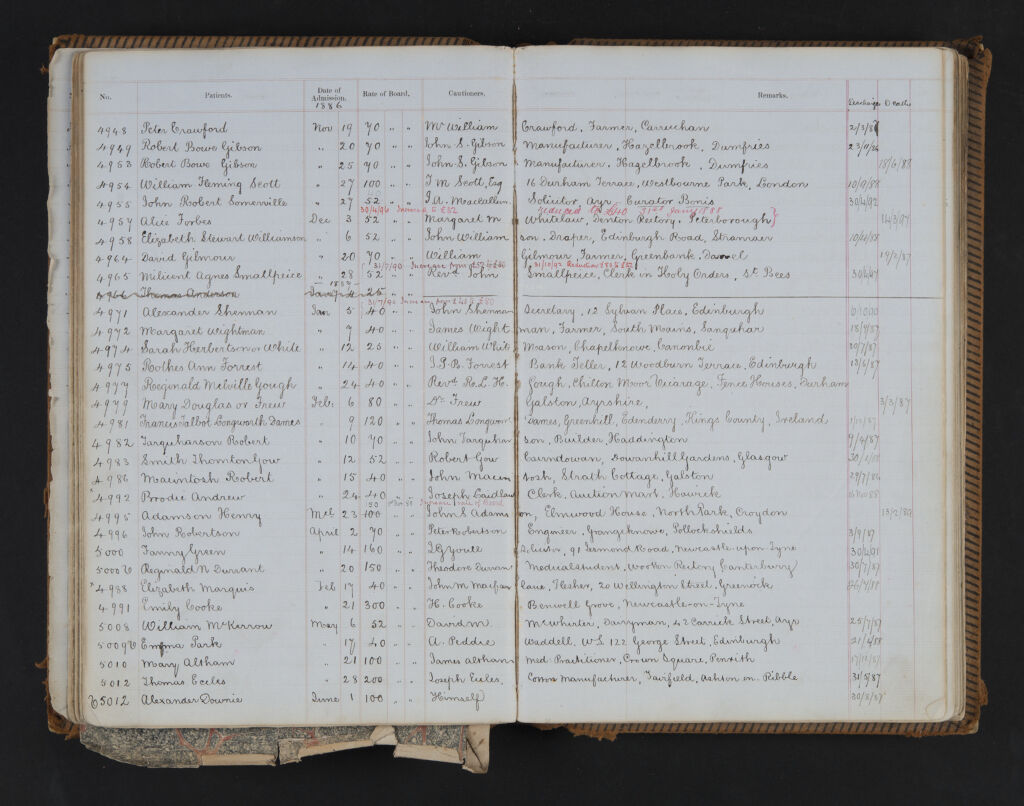 No. Patients. Date of Admission. Rate of Board. Cautioners. Remarks. Discharge Death
1886
4948 Peter Crawford Nov 19 70 „ „ Mr William Crawford, Farmer, Carruchan 2/3/87
4949 Robert Bowe Gibson „ 20 70 „ „ John S. Gibson Manufacturer, Hazelbrook, Dumfries 23/11/86
4953 Robert Bowe Gibson „ 25 70 „ „ John S. Gibson Manufacturer. Hazelbrook. Dumfries 18/6/88
4954 William Fleming Scott „ 27 100 „ „ J M Scott, Esq 16 Durham Terrace, Westbourne Park, London 10/9/88
4955 John Robert Somerville „ 27 52 „ „ J. A. Macallum Solicitor, Ayr. Curator Bonis 30/4/92
30/4/96 Increase to £52 reduced to £40 31st Jany 1888
4957 Alice Forbes Dec 3 52 „ „ Margaret M Whitelaw, Denton Rectory, Peterborough 14/3/97
4958 Elizabeth Stewart Williamson „ 6 52 „ „ John Williamson. Draper, Edinburgh Road, Stranraer 10/4/88
4964 David Gilmour „ 20 70 „ „ William Gilmour, Farmer, Greenbank, 19/2/87
31/7/90 31/10/92 Reduction
4965 Milicent Agnes Smallpeice „ 28 52 „ „ Revd John Smallpeice, Clerk in Holy Orders, St Bees
1887
4966 Thomas Anderson Jany 4 25
31/7/90 Increase from £40 to £50
4971 Alexander Shennan Jan 5 40 „ „ John Shennan Secretary, 12 Sylvan Place, Edinburgh
4972 Margaret Wightman „ 7 40 „ „ James Wightman, Farmer, South Mains, Sanquhar 18/7/87
4974 Sarah Herbertson or White „ 12 25 „ „ William White Mason, Chapelknowe, Canonbie 30/7/87
4975 Rothes Ann Forrest „ 14 40 „ „ J. P. B. Forrest Bank Teller, 12 Woodburn Terrace, Edinburgh 13/6/87
4977 Reginald Melville Gough „ 24 40 „ „ Revd R. L. H. Gough, Chilton Moor Vicarage, Fence Houses, Durham
4979 Mary Douglas or Frew Feb: 6 80 „ „ Dr Frew Galston, Ayrshire, 3/3/87
4981 Francis Talbot Longworth Dames „ 9 120 „ „ Thomas Longworth Dames, Greenhill, Edenderry, Kings County, Ireland
4982 Farquharson Robert „ 10 70 „ „ John Farquharson, Builder, Haddington 9/4/87
4983 Smith Thomton Gow „ 12 52 „ „ Robert Gow Cairndowan, Dowanhill Gardens, Glasgow
4986 Macintosh Robert „ 15 40 „ „ John Macintosh, Strath Cottage, Galston
4992 Brodie Andrew „ 24 40 „ „ Joseph Laidlaw Clerk, Auction Mart, Hawick
150 Increase rate of Board
4995 Adamson Henry Mch 23 100 „ „ John S Adamson, Elmwood House, North Park, Croydon 13/2/89
4996 John Robertson April 2 70 „ „ Peter Robertson Engineer, Grangeknowe, Pollockshields 3/9/87
5000 Fanny Green „ 14 160 „ „ Solicitor, 91 Jesmond Road, Newcastle upon Tyne 30/4/91
5000b Reginald N Durrant „ 20 150 „ „ Theodore Durrant Medical student, Wootton Rectory Canterbury 30/7/87
4988 Elizabeth Marquis Feb 17 40 „ „ John M Macfarlane, Flesher, 20 Wellington Street, Greenock
4991 Emily Cooke „ 21 300 „ „ H. Cooke Benwell Grove, Newcastle-on-Tyne
5008 William McKerrow May 6 52 „ „ David M. McWhirter, Dairyman, 42 Carrick Street, Ayr 25/7/87
5009b Emma Park „ 17 40 „ „ A. Peddie Waddell, W.S. 122 George Street, Edinburgh 21/4/88
5010 Mary Altham „ 21 100 „ „ James Altham Med. Practitioner, Crown Square, Penrith 17/11/87
5012 Thomas Eccles „ 28 200 „ „ Joseph Eccles, Cotton Manufacturer, Fairfield, Ashton on Ribble 31/5/87
b5012 Alexander Downie June 1 100 „ „ Himself 30/8/87